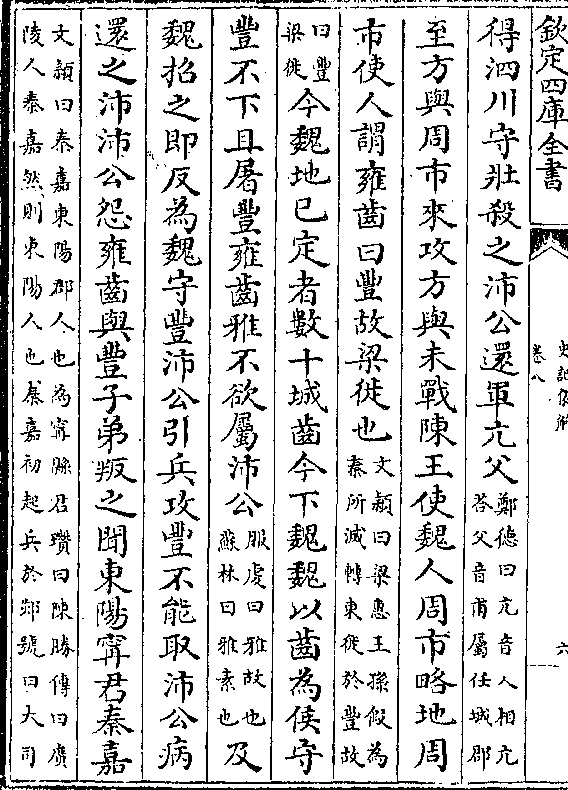 欽定四庫全書
史記集解
卷八
六
得泗川守壯殺之沛公還軍亢父鄭德曰亢音人相亢
答父音甫屬任城郡
至方與周市來攻方與未戰陳王使魏人周市略地周
市使人謂雍齒曰豐故梁徙也文頴曰梁惠王孫假為
秦所滅轉東徙於豐故
曰豐
梁徙今魏地已定者數十城齒今下魏魏以齒為侯守
豐不下且屠豐雍齒雅不欲屬沛公服虔曰雅故也
蘇林曰雅素也及
魏招之即反為魏守豐沛公引兵攻豐不能取沛公病
還之沛沛公怨雍齒與豐子弟叛之聞東陽甯君秦嘉
文頴曰秦嘉東陽郡人也為甯縣君瓚曰陳勝傳曰廣
陵人秦嘉然則東陽人也秦嘉初起兵於郯號曰大司